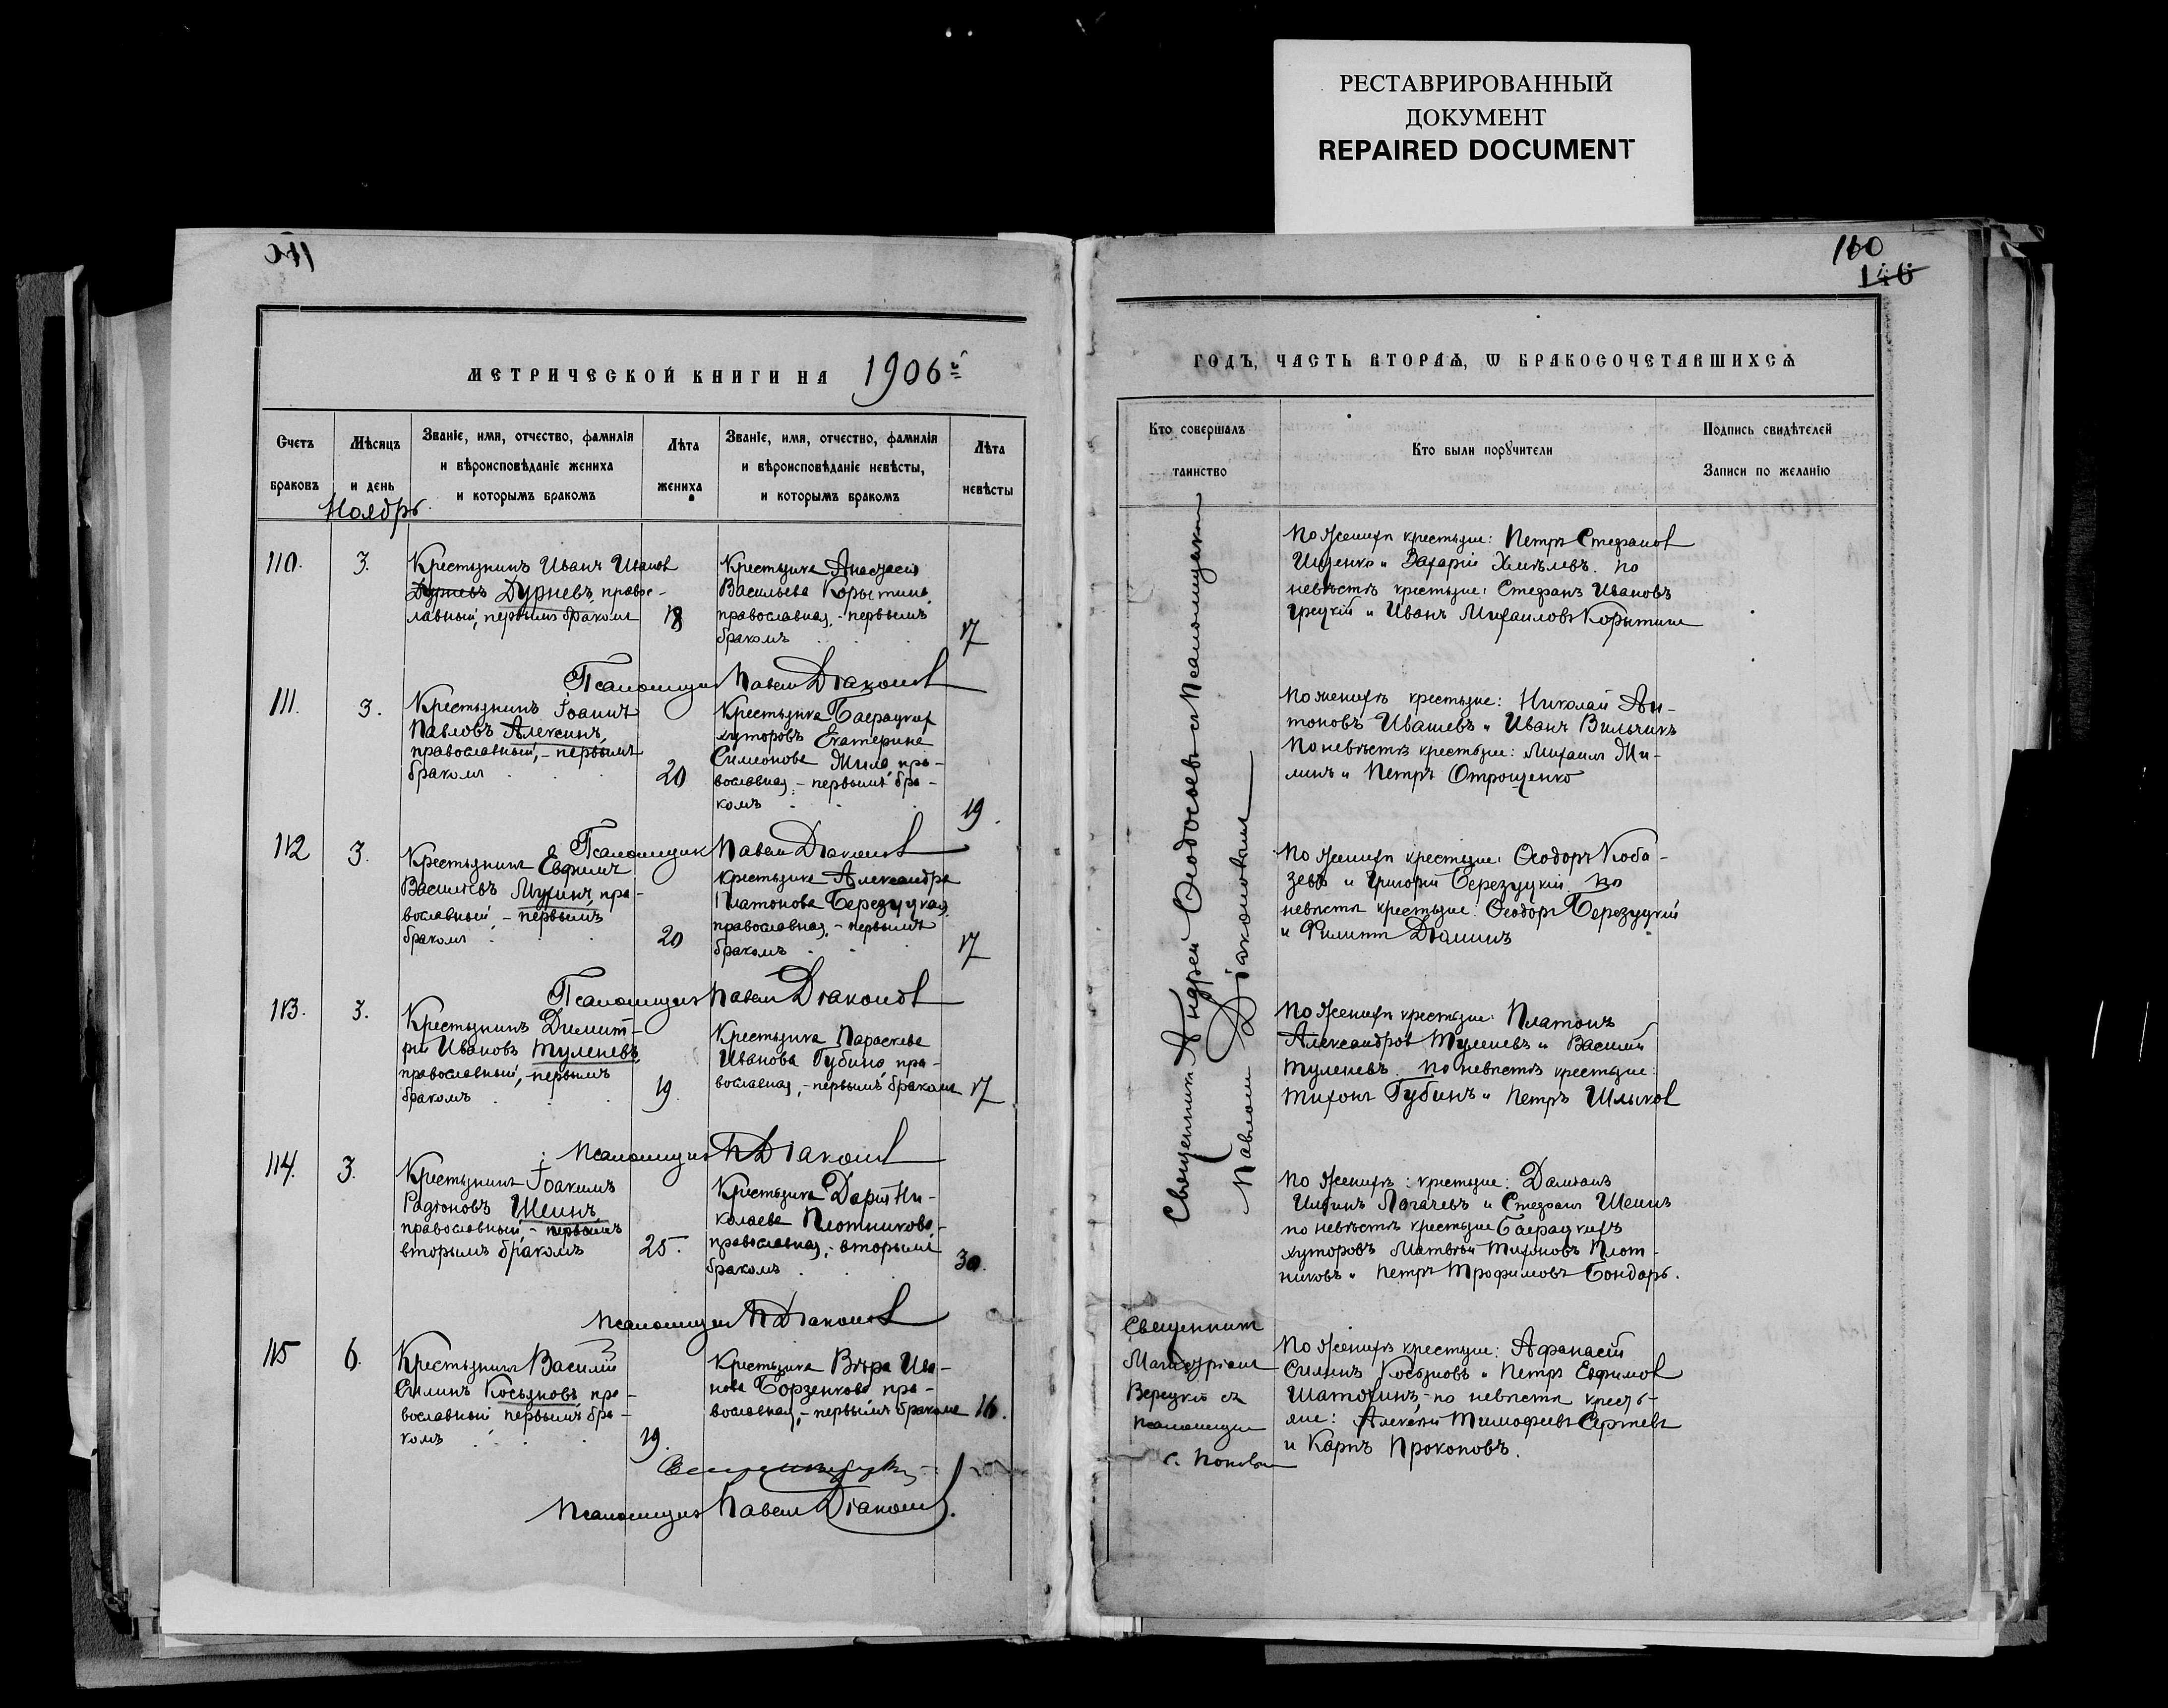 РЕСТАВРИРОВАННЫЙ
ДОКУМЕНТ
REPAIRED DOCUMENT
160
160
146
МЕТРИЧЕСКОЙ КНИГИ НА 1906й
ГОДЪ, ЧАСТЬ ВТОРАѦ, Ѡ БРАКОСОЧЕТАВШИХСѦ
Счетъ
браковъ
Мѣсяцъ
и день
Ноябрь
Званіе, имя, отчество, фамилія
и вѣроисповѣданіе жениха
и которымъ бракомъ
Лѣта
жениха
Званіе, имя, отчество, фамилія
и вѣроисповѣданіе невѣсты,
и которымъ бракомъ
Лѣта
невѣсты
Кто совершалъ
таинство
Кто были порꙋчители
Подпись свидѣтелей
Записи по желанію
110. 3.
Крестьянинъ Иванъ Иванов
Дурневъ Дурневъ, правос-
лавный, первымъ бракомъ 18
Крестьянка Анастасія
Васильева Корытина,
православная, - первымъ
бракомъ 17
По женихѣ крестьяне: Петръ Стефанов
Ищенко и Захарій Хмѣлевъ. По
невѣстѣ крестьяне: Стефанъ Ивановъ
Грецкій и Иванъ Михаиловъ Корытин
Псаломщик Павел Діаконов
111. 3.
Крестьянинъ Іоаннъ
Павловъ Алексинъ,
православный, - первымъ
бракомъ 20
Крестьянка Баграцких
хуторовъ Екатерина
Симеонова Мила, пра-
вославная, - первымъ бра-
комъ 19.
По женихѣ крестьяне: Николай Ан-
тоновъ Ивашевъ и Иванъ Вильчикъ
По невѣстѣ крестьяне: Михаилъ Ми-
линъ и Петръ Отрощенко
Псаломщик Павел Діаконов
112 3.
Крестьянинъ Евфимъ
Васильевъ Мухинъ, пра-
вославный, - первымъ
бракомъ 20
Крестьянка Александра
Платонова Березуцкая,
православная, - первымъ
бракомъ 17
По женихѣ крестьяне: Ѳеодоръ Коба-
зевъ и Григорій Березуцкій. По
невѣстѣ крестьяне: Ѳеодоръ Березуцкій
и Филиппъ Дюминъ
Псаломщик Павел Діаконов
113. 3.
Крестьянинъ Димит-
рій Ивановъ Туленевъ,
православный, - первымъ
бракомъ 19.
Крестьянка Параскева
Иванова Губина, пра-
вославная, - первымъ бракомъ 17
По женихѣ крестьяне: Платонъ
Александров Туленевъ и Василій
Туленевъ. По невѣстѣ крестьяне:
Тихонъ Губинъ и Петръ Шлыков
Псаломщик П Діаконов
114. 3.
Крестьянинъ Іоакимъ
Радіоновъ Шеинъ,
православный, - первымъ
вторымъ бракомъ 25.
Крестьянка Дарія Ни-
колаева Плотникова,
православная, - вторымъ
бракомъ 30.
По женихѣ: крестьяне: Даміанъ
Логачевъ и Стефанъ Шеинъ
по невѣстѣ крестьяне Баграцкихъ
хуторовъ Матвѣй Тихоновъ Плот-
никовъ и Петръ Трофимовъ Бондарь.
Псаломщик П Діаконов
115 6.
Крестьянинъ Василій
Силинъ Косьяновъ, пра-
вославный первымъ бра-
комъ 19.
Крестьянка Вѣра Ива-
нова Борзенкова, пра-
вославная, - первымъ бракомъ 16.
По женихѣ крестьяне: Афанасій
Силинъ Косьяновъ и Петръ Ефимов
Шатохинъ, - по невѣстѣ кресть-
яне: Алексѣй Тимофеевъ Сергѣевъ
и Карпъ Прокоповъ.
Псаломщик Павел Діаконов.
Священникъ Андрей Ѳеодосьевъ съ Псаломщикомъ
Павломъ Діаконовымъ
Священникъ
Верецкій съ
псаломщик